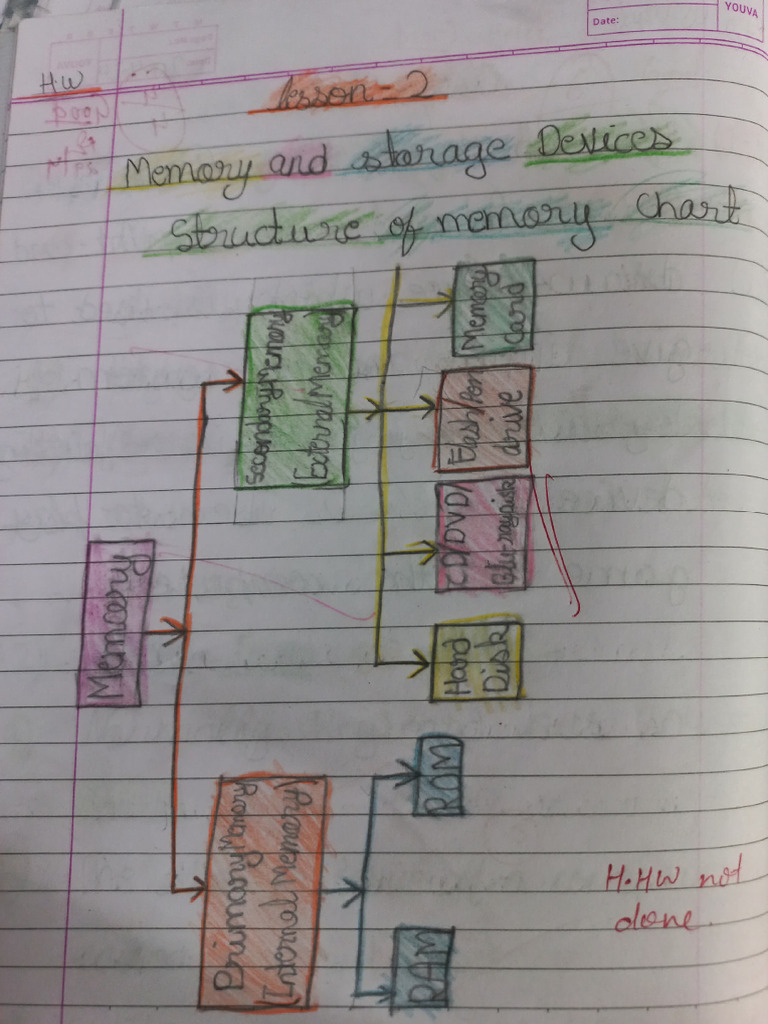 YOUVA
Date:
H.W
lesson-2
Memory and storage Devices
Structure of memory Chart
Memory
Primary Memory
Internal Memory
Secondary Memory
External Memory
RAM
ROM
Hard
Disk
CD/DVD/
Blu-ray disk
Flash/Pen
drive
Memory
card
H.HW not
done.